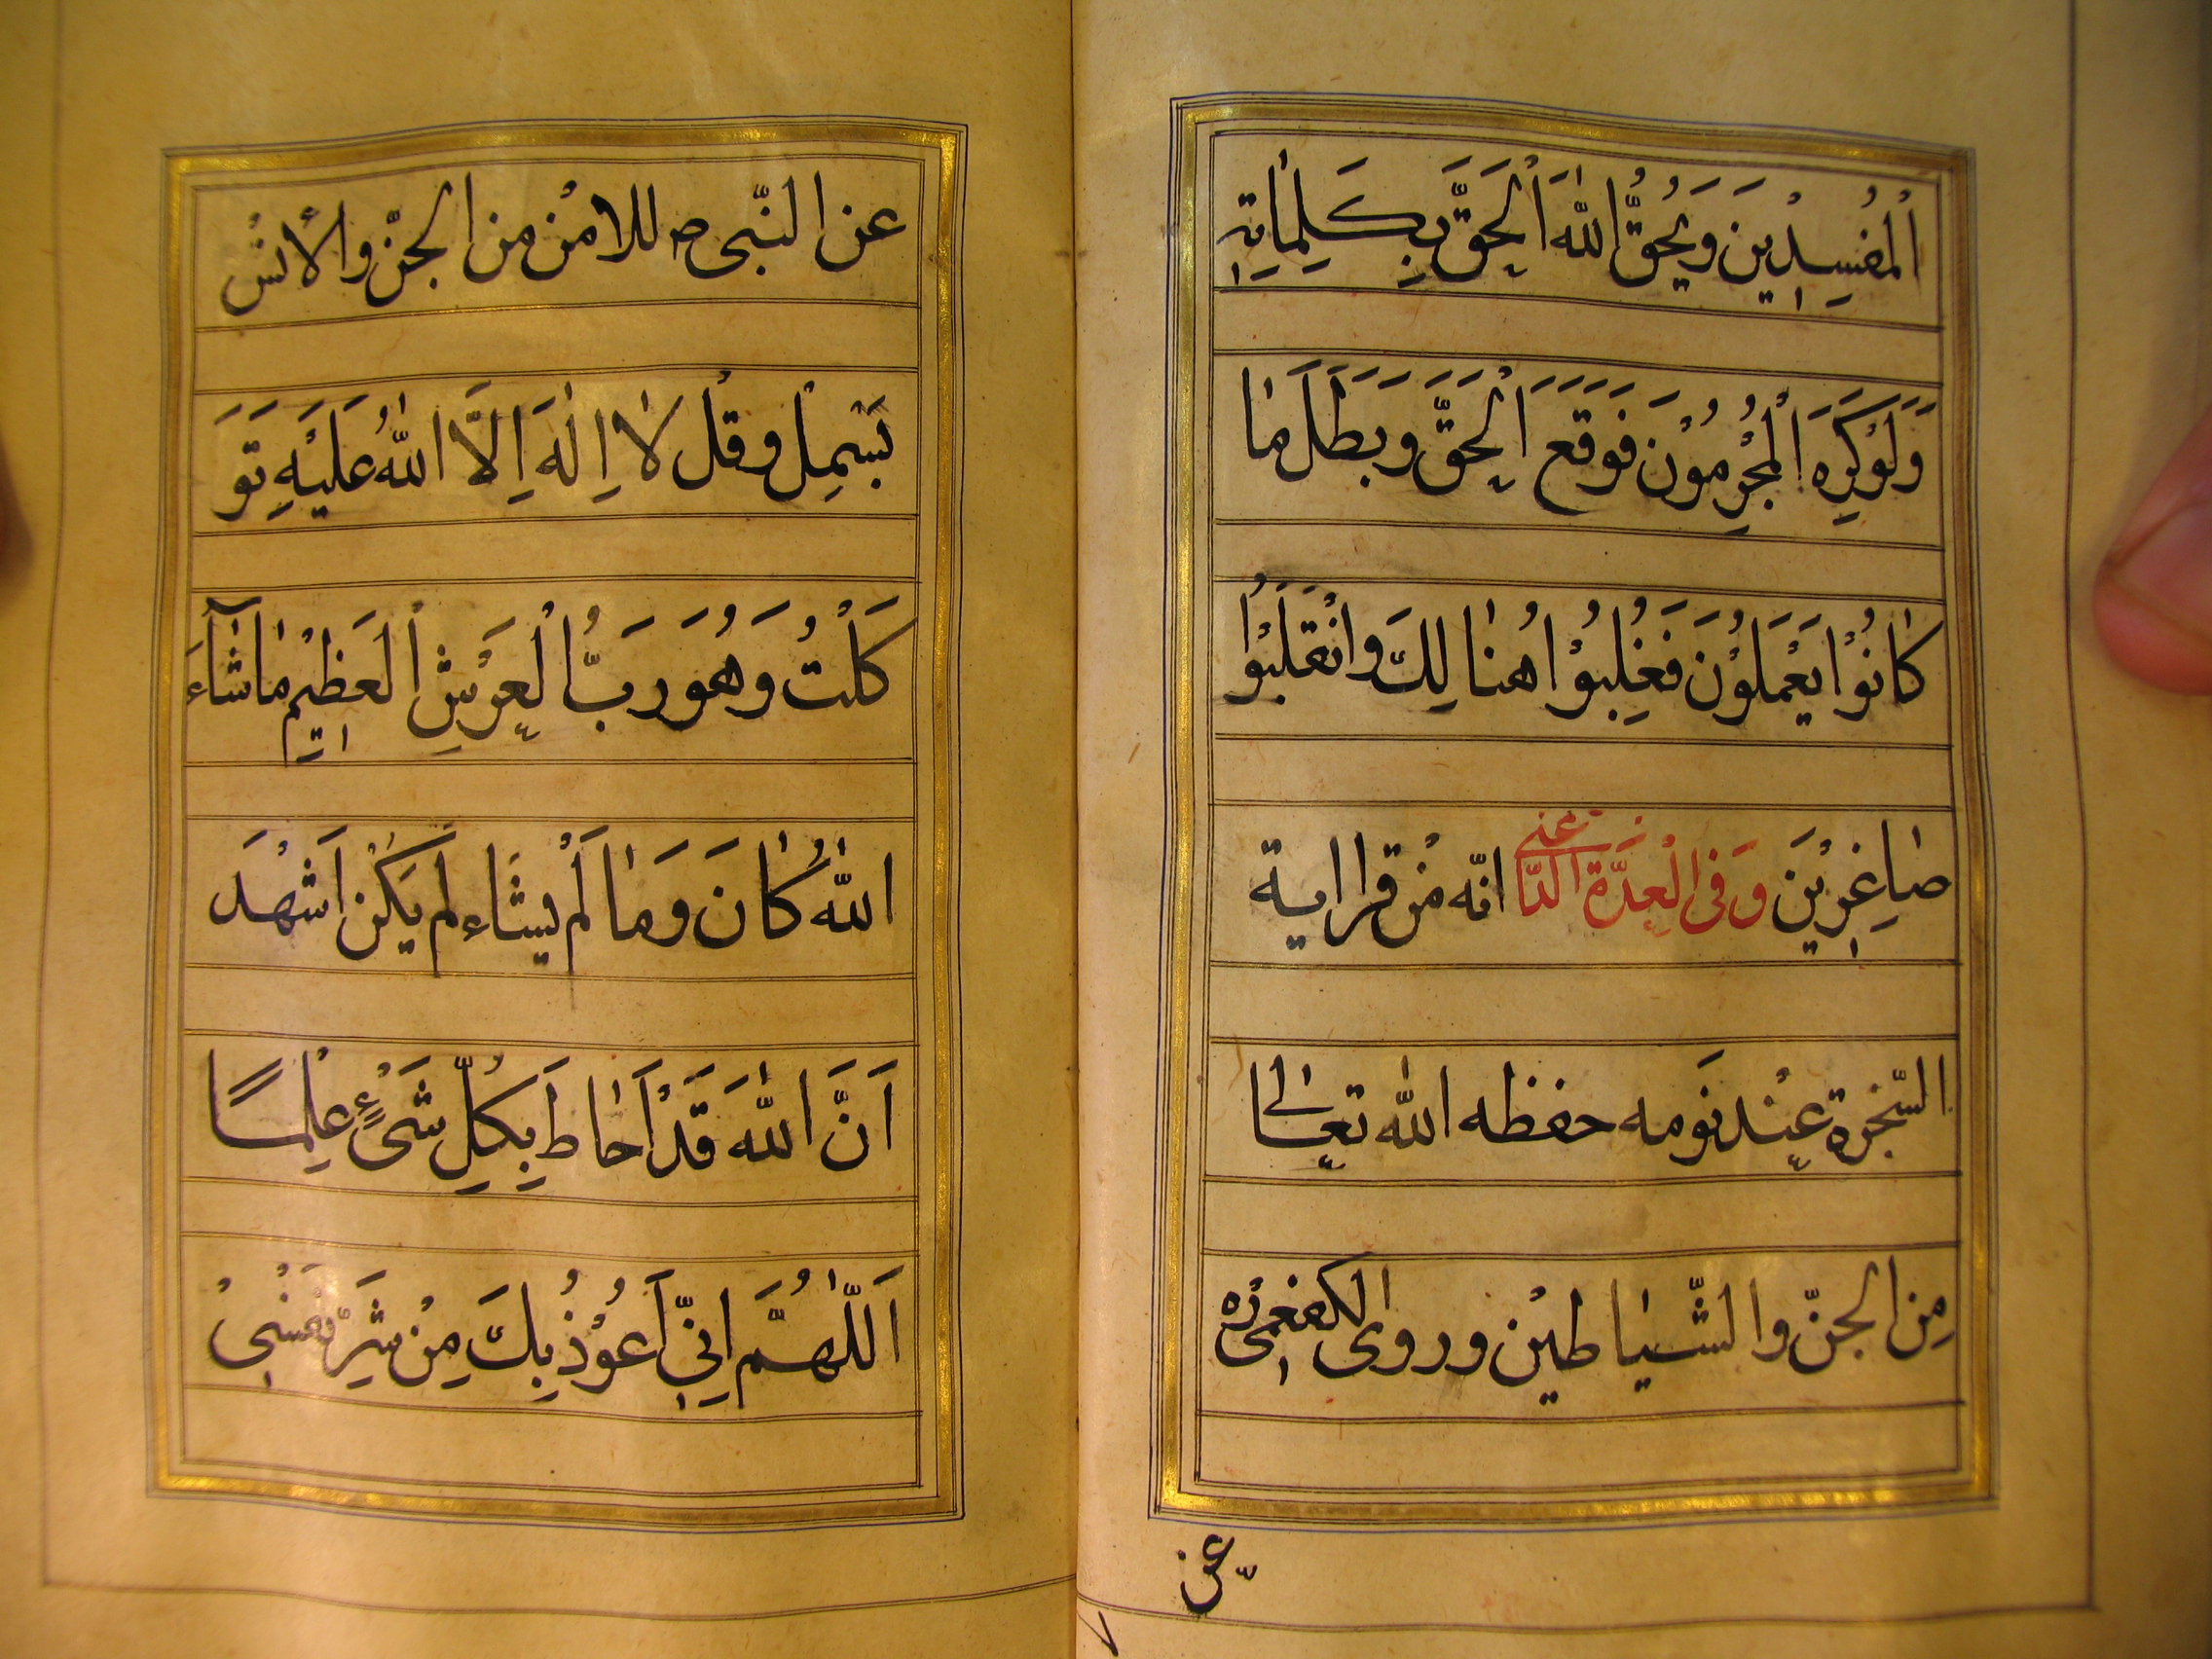 الْمُفْسِدِيْنَ وَيُحِقُّ اللّٰهُ الْحَقَّ بِكَلِمٰاتِهِ
وَلَوْكَرِهَ الْمُجْرِمُوْنَ فَوَقَعَ الْحَقَّ وَبَطَلَ مٰا
كٰانُوْا يَعْمَلُوْنَ فَغُلِبُوْا هُنٰالِكَ وَانْقَلَبُوْا
صٰاغِرِيْنَ وَفى الْعِدَّة انّه مْن قرا اية
السّخرة عِنْد نَومه حفظه اللّٰه تعٰالى
مِن الجنّ والشّيٰاطيْن وروى الكفعمىْ ره
عن
عن النّبى ص للامْن من الجنّ والأنْس
بَسْمِلْ وقُلْ لٰا اِلٰهَ اِلَّا اللّٰهُ عَلَيْهِ تَوَ
كَلْتُ وَهُوَ رَبُّ الْعَرْشِ الْعَظِيْمِ مٰاشٰآءَ
اللّٰهُ كٰانَ وَمٰا لَمْ يشَاء لَم يَكُنْ اَشْهَدَ
اَنَّ اللّٰهَ قَدْ اَحٰاطَ بِكُلِّ شَىْءٍ عِلْمًا
اَللّٰهُمَّ اِنِّى اَعُوْذُ بِكَ مِنْ شَرِّ نَفْسْىْ